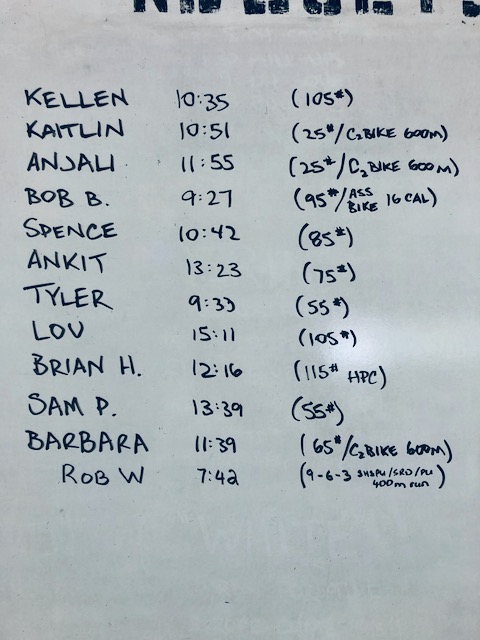 KELLEN 10:35 (105#)
KAITLIN 10:51 (25#/C2BIKE 600M)
ANJALI 11:55 (25#/C2BIKE 600M)
BOB B. 9:27 (95#/ASS BIKE 16 CAL)
SPENCE 10:42 (85#)
ANKIT 13:23 (75#)
TYLER 9:33 (55#)
LOU 15:11 (105#)
BRIAN H. 12:16 (115# HPC)
SAM P. 13:39 (55#)
BARBARA 11:39 (65#/C2BIKE 600M)
ROB W 7:42 (9-6-3 SHSPU/SRO/PU 400m run)